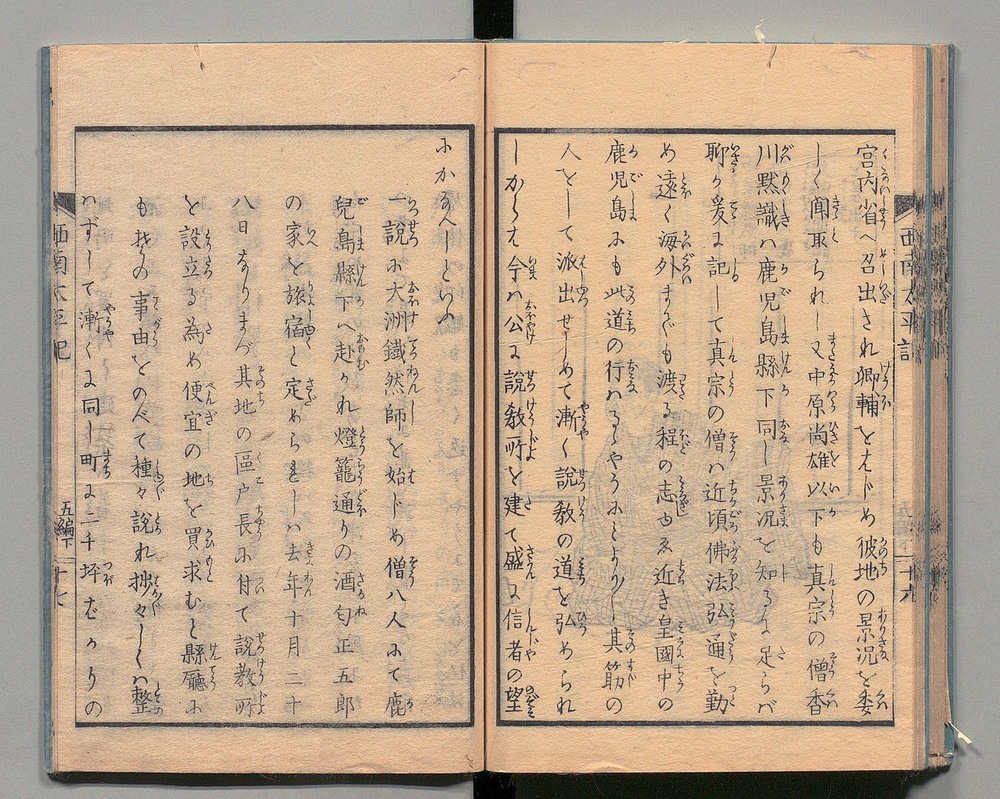 宮内省へ召出され卿輔をはじめ彼地の景況を委
しく聞取られし又中原尚雄以下も真宗の僧香
川黙識ハ鹿児島縣下同し景況を知るに足らバ
聊か爰に記して真宗の僧ハ近頃佛法弘通を勤
め遠く海外までも渡る程の志ゆゑ近き皇國中の
鹿児島にも此道の行ハるゝやうにとより〳〵其筋の
人をして派出せしめて漸く説教の道を弘められ
しかバ今ハ公に説教所を建て盛に信者の望
にかなへしといふ
一説に大洲鐵然師を始じめ僧八人にて鹿
児島縣下へ赴かれ燈籠通りの酒匂正五郎
の家を旅宿と定められしハ去年十月二十
八日なりまづ其地の區戸長に付て説教所
を設立る為め便宜の地を買求むと縣廳に
も其の事由をのべて種々説れ捗々しくハ整
はずして漸くに同し町に二千坪ばかりの
西南太平記
五編下
十六
西南太平記
五編下
十七